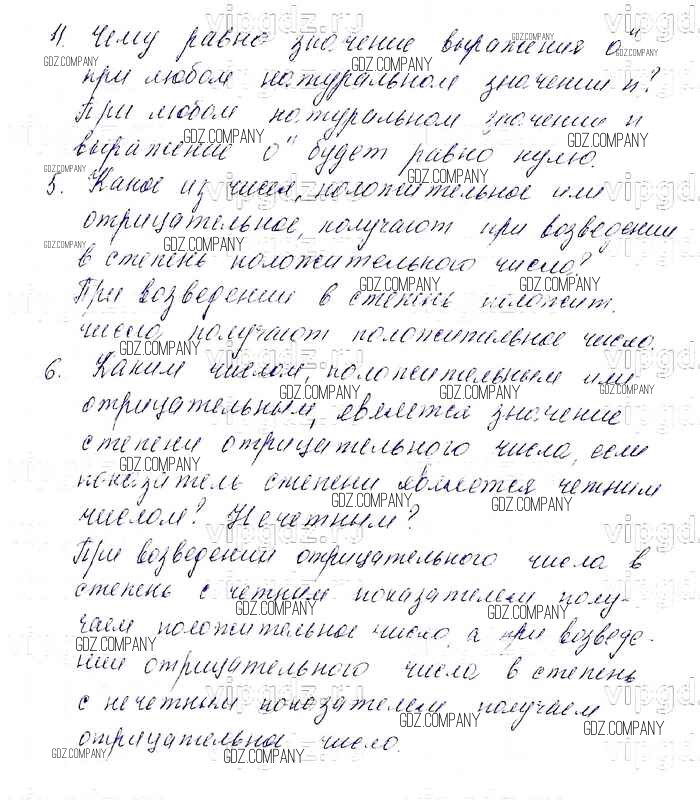 11. Чему равно значение выражения 0ⁿ
при любом натуральном значении n?
При любом натуральном значении n
выражение 0ⁿ будет равно нулю.
5. Какое из чисел, положительное или
отрицательное, получают при возведении
в степень положительного числа?
При возведении в степень положит.
числа получают положительное число.
6. Каким числом, положительным или
отрицательным, является значение
степени отрицательного числа, если
показатель степени является четным
числом? Нечетным?
При возведении отрицательного числа в
степень с четным показателем полу-
чаем положительное число, а при возведе-
нии отрицательного числа в степень
с нечетным показателем получаем
отрицательное число.